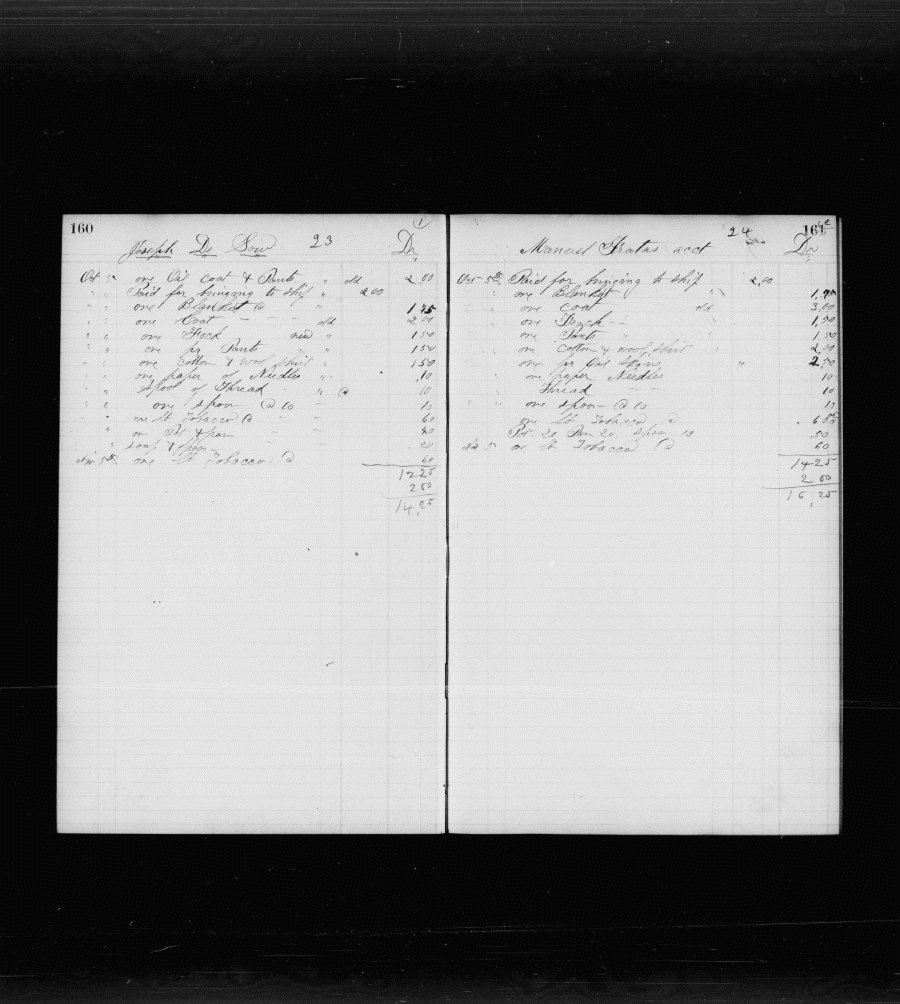 160
Joseph De Sow 23 Dr
Oct 5 one Oil coat & Pants " old 2,00
" " Paid for bringing to ship " 2 00
" " one Blanket @ " " 1 75
" " one Coat - - - old 2 00
" " one Frock new " 1 50
" " one pr Pants " " 1 50
" " one Cotton & wool, Shirt " 1 50
" " one paper of Needles " ,10
" Spool of Thread " @ 10
" one spoon - @ 10 10
" one lb Tobacco @ - - 60
" one Pot & pan - -
" Soap & - - 20
Nov 5th one lb Tobacco @ 60
12 25
2 00
14,25
161
Manuel Fratas acct 24 Dr
Oct 5th Paid for bringing to ship 2,00
" one Blanket " 1,75
one Coat old 3,00
" one Frock - - " 1,50
" one Pants " " 1 50
" one cotton & wool, Shirt " 2,00
" one pr Oil " 2,50
" one paper Needles 10
Thread 10
" " one spoon - @ 10 10
one lb Tobacco @ 60
Pot 20 Pan 20, Spoon 10 ,50
Nov 5 one lb Tobacco @ 60
14 25
2 00
16,25